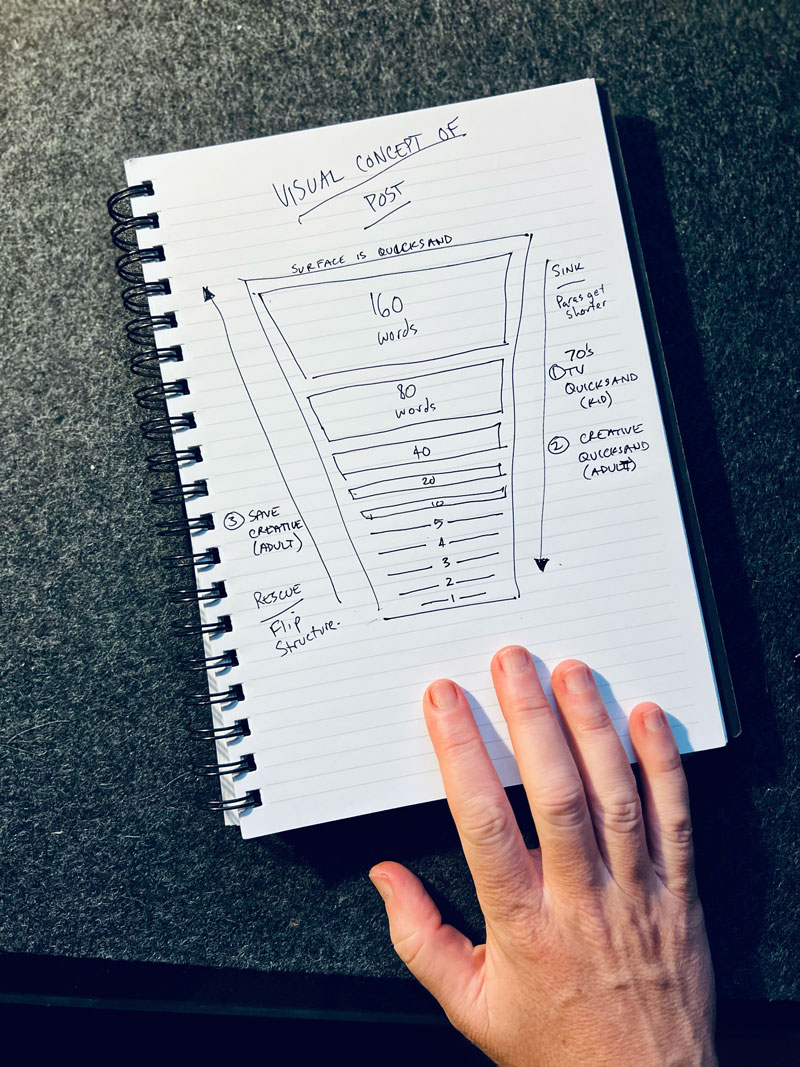 VISUAL CONCEPT OF
POST
SURFACE IS QUICKSAND
160
words
80
words
40
20
10
5
4
3
2
1
SINK
Paras get
shorter
70's
① TV
QUICKSAND
(KID)
② CREATIVE
QUICKSAND
(ADULT)
③ SAVE
CREATIVE
(ADULT)
RESCUE
Flip
Structure.